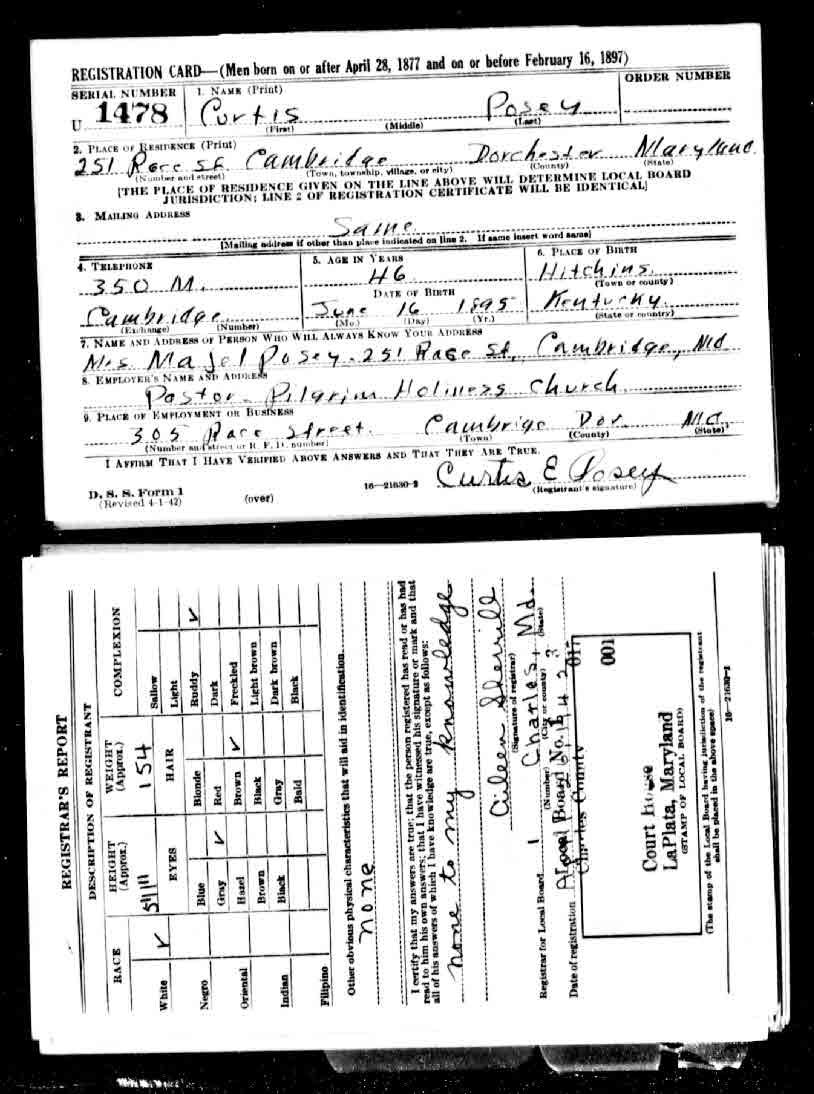 REGISTRATION CARD—(Men born on or after April 28, 1877 and on or before February 16, 1897)
SERIAL NUMBER 1. NAME (Print) ORDER NUMBER
U 1478 Curtis Posey
(First) (Middle) (Last)
2. PLACE OF RESIDENCE (Print)
251 Race St. Cambridge Dorchester Maryland
(Number and street) (Town, township, village, or city) (County) (State)
[THE PLACE OF RESIDENCE GIVEN ON THE LINE ABOVE WILL DETERMINE LOCAL BOARD
JURISDICTION; LINE 2 OF REGISTRATION CERTIFICATE WILL BE IDENTICAL]
3. MAILING ADDRESS
Same
[Mailing address if other than place indicated on line 2. If same insert word same]
4. TELEPHONE 5. AGE IN YEARS 6. PLACE OF BIRTH
350 M. 46 Hitchins
(Town or county)
DATE OF BIRTH
Cambridge June 16 1895 Kentucky
(Exchange) (Number) (Mo.) (Day) (Yr.) (State or country)
7. NAME AND ADDRESS OF PERSON WHO WILL ALWAYS KNOW YOUR ADDRESS
Mrs. Majel Posey - 251 Race St, Cambridge, Md
8. EMPLOYER'S NAME AND ADDRESS
Pastor - Pilgrim Holiness Church
9. PLACE OF EMPLOYMENT OR BUSINESS
305 Race Street. Cambrige Dor. Md.
(Number and street or R. F. D. number) (Town) (County) (State)
I AFFIRM THAT I HAVE VERIFIED ABOVE ANSWERS AND THAT THEY ARE TRUE.
D. S. S. Form 1
(Revised 4-1-42) (over) 16—21630-2 Curtis E Posey
(Registrant's signature)
REGISTRAR'S REPORT
DESCRIPTION OF REGISTRANT
RACE HEIGHT (Approx.) WEIGHT (Approx.) COMPLEXION
White ✓ 5'11" 154 Sallow
EYES HAIR Light
Negro Blue Blonde Ruddy ✓
Gray ✓ Red Dark
Oriental Hazel Brown ✓ Freckled
Brown Black Light brown
Indian Black Gray Dark brown
Bald Black
Filipino
Other obvious physical characteristics that will aid in identification
none
I certify that my answers are true; that the person registered has read or has had
read to him his own answers; that I have witnessed his signature or mark and that
all of his answers of which I have knowledge are true, except as follows:
none to my knowledge
Aileen Sherrill
(Signature of registrar)
Registrar for Local Board 1 Charles, Md.
(Number) (City or county) (State)
Date of registration
Local Board No. 1
Charles County
017
001
Court House
LaPlata, Maryland
(STAMP OF LOCAL BOARD)
(The stamp of the Local Board having jurisdiction of the registrant
shall be placed in the above space)
16—21630-2